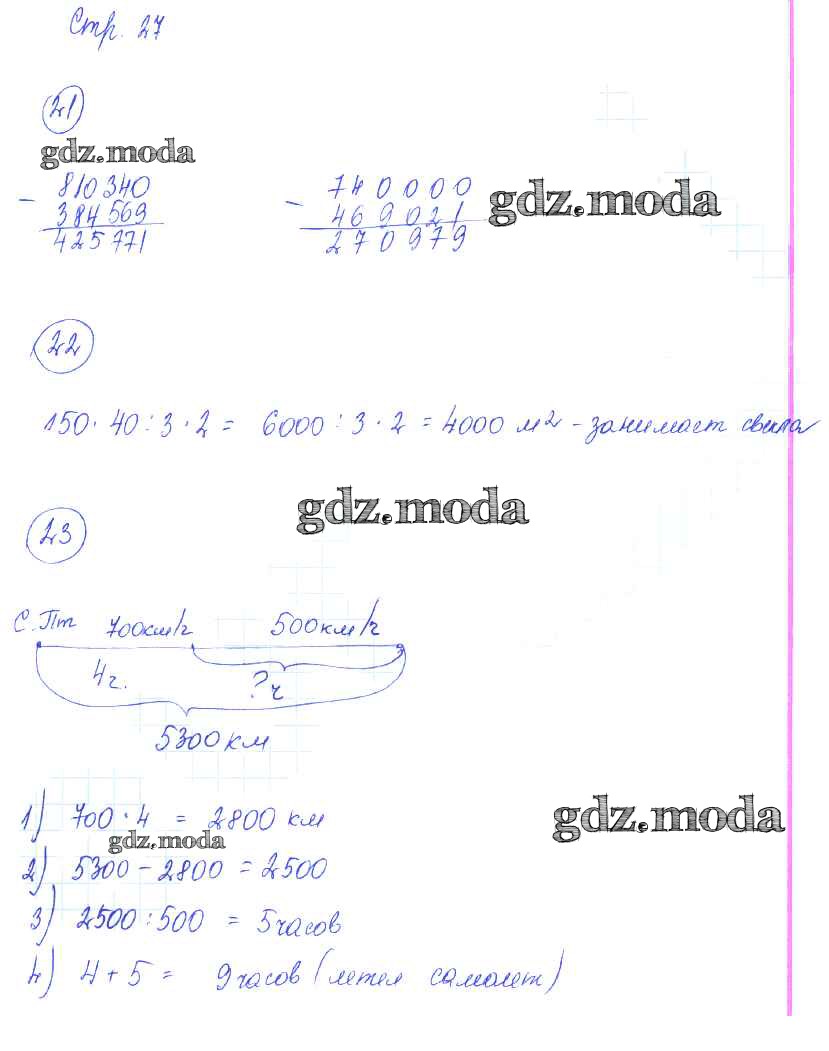 Стр. 27
21
gdz.moda
- 810340
384569
425771
- 740000
469021
270979
gdz.moda
22
150·40:3·2= 6000:3·2=4000 м² - занимает свекла
gdz.moda
23
С. Пт 700км/ч 500км/ч
4ч. ?ч
5300 км
gdz.moda
1) 700·4 = 2800 км
gdz.moda
2) 5300-2800=2500
3) 2500:500 = 5часов
4) 4+5= 9часов (летел самолет)